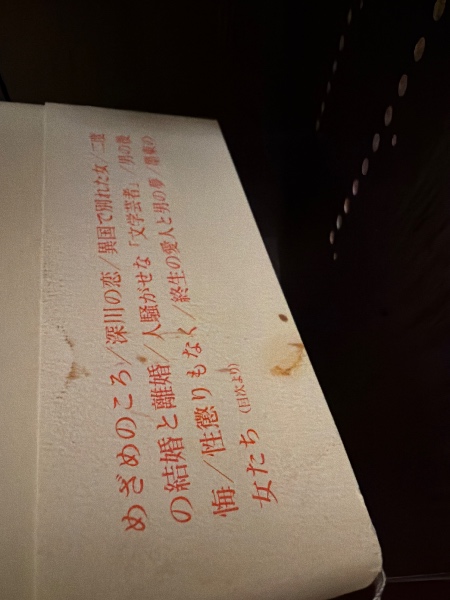 めざめのころ／深川の恋／異国で別れた女／二度
の結婚と離婚／人騒がせな「文学芸者」／男の後
悔／性懲りもなく／終生の愛人と男の夢／墨東の
女たち（目次より）